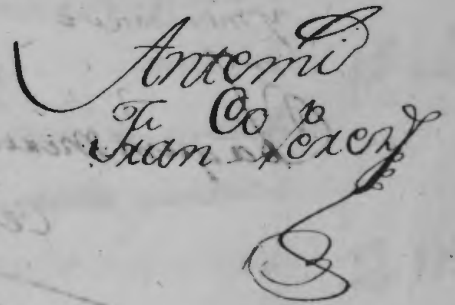 Antemi
Franco Perez